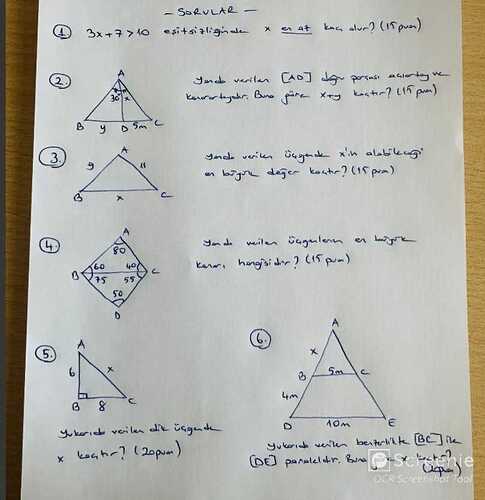 — SORULAR —
1. 3x+7>10 eşitsizliğinde x en az kaç olur? (15 puan)
2. Yanda verilen [AD] doğru parçası açıortay ve
kenarortaydır. Buna göre x+y kaçtır? (15 puan)
A
30 x
B y D 5m C
3. Yanda verilen üçgende x'in alabileceği
en büyük değer kaçtır? (15 puan)
A
9 11
B x C
4. Yanda verilen üçgenlerin en büyük
kenarı hangisidir? (15 puan)
A
80
B 60 40 C
75 55
50
D
5.
A
6 x
B 8 C
Yukarıda verilen dik üçgende
x kaçtır? (20 puan)
6.
A
x
B 5m C
4m
D 10m E
Yukarıda verilen benzerlikte [BC] ile
[DE] paraleldir. Buna
Screenie
OCR Screenshot Tool